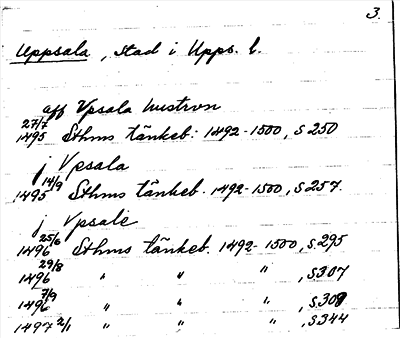 3.
Uppsala, stad i Upps. l.
aff Vpsala hustron
27/7 1495 Sthms tänkeb. 1492-1500, s. 250
j Vpsala
14/9 1495 Sthms tänkeb. 1492-1500, s. 257.
j Vpsale
25/6 1496 Sthms tänkeb. 1492-1500, s. 295
29/8 1496 " " " , s. 307
7/9 1496 " " " , s. 308
1497 2/1 " " " , s. 344